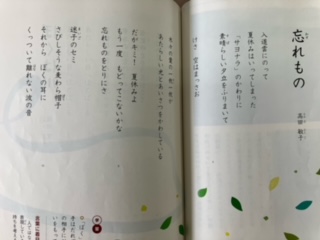 忘れもの
高田敏子
入道雲にのって
夏休みはいってしまった
「サヨナラ」のかわりに
素晴らしい夕立をふりまいて
けさ 空はまっさお
木々の葉の一枚一枚が
あたらしい光とあいさつをかわしている
だがキミ! 夏休みよ
もう一度 もどってこないかな
忘れものをとりにさ
迷子のセミ
さびしそうな麦わら帽子
それから ぼくの耳に
くっついて離れない波の音